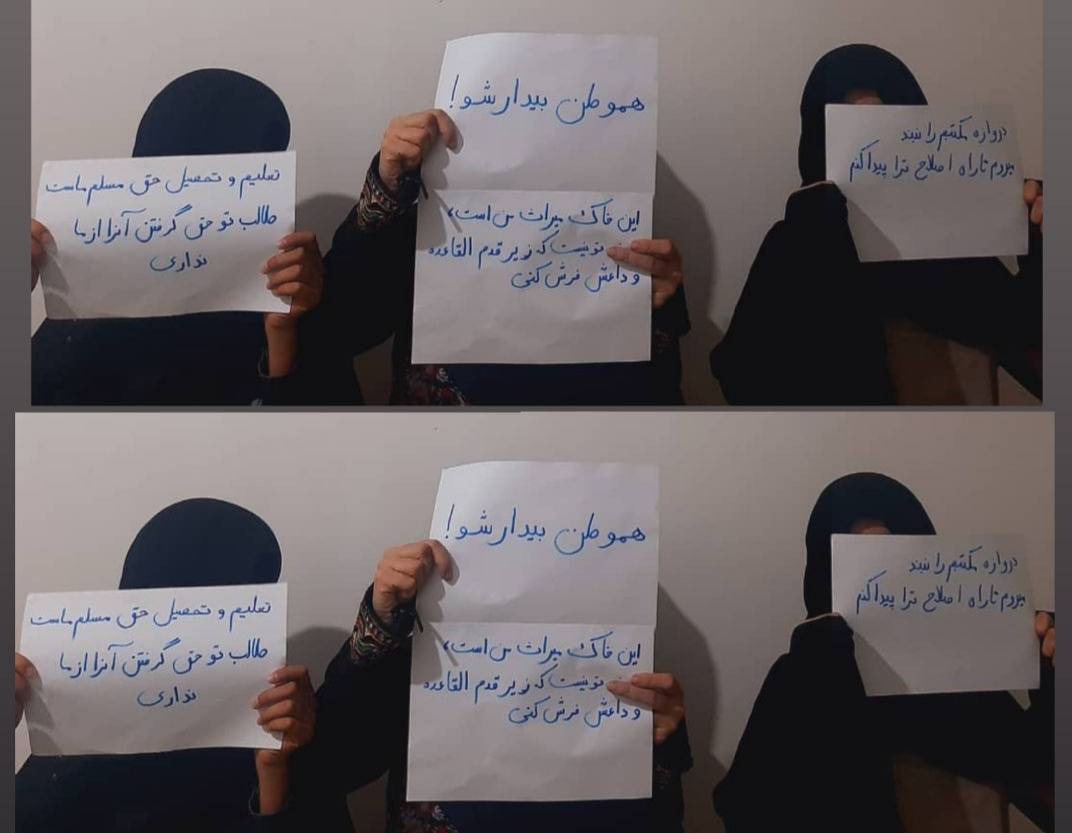 هموطن بیدار شو!
این خاک میراث من است،
تو نیست که زیر قدم القاعده
و داعش فرش کنی
دروازه مکتبم را نبند
بروم تا راه اصلاح ترا پیدا کنم
تعلیم و تحصیل حق مسلم ماست
طالب تو حق گرفتن آنرا از ما
نداری
هموطن بیدار شو!
این خاک میراث من است،
تو نیست که زیر قدم القاعده
و داعش فرش کنی
دروازه مکتبم را نبند
بروم تا راه اصلاح ترا پیدا کنم
تعلیم و تحصیل حق مسلم ماست
طالب تو حق گرفتن آنرا از ما
نداری